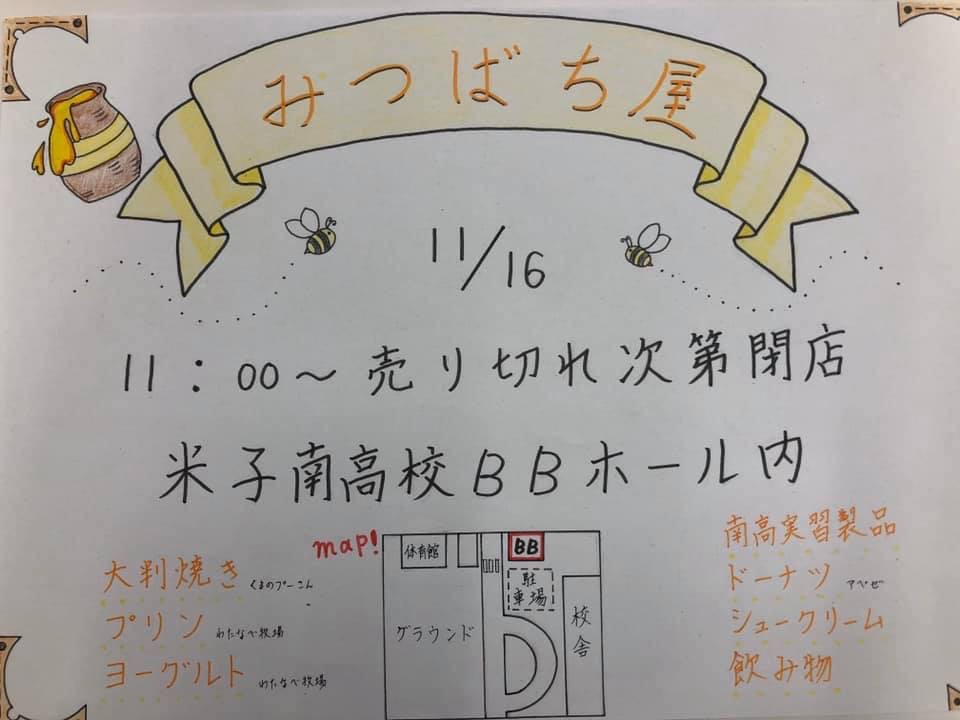 みつばち屋
11/16
11:00〜売り切れ次第閉店
米子南高校BBホール内
大判焼き くまのプーこん
プリン わたなべ牧場
ヨーグルト わたなべ牧場
map!
体育館
BB
駐車場
グラウンド
校舎
南高実習製品
ドーナツ アベゼ
シュークリーム
飲み物